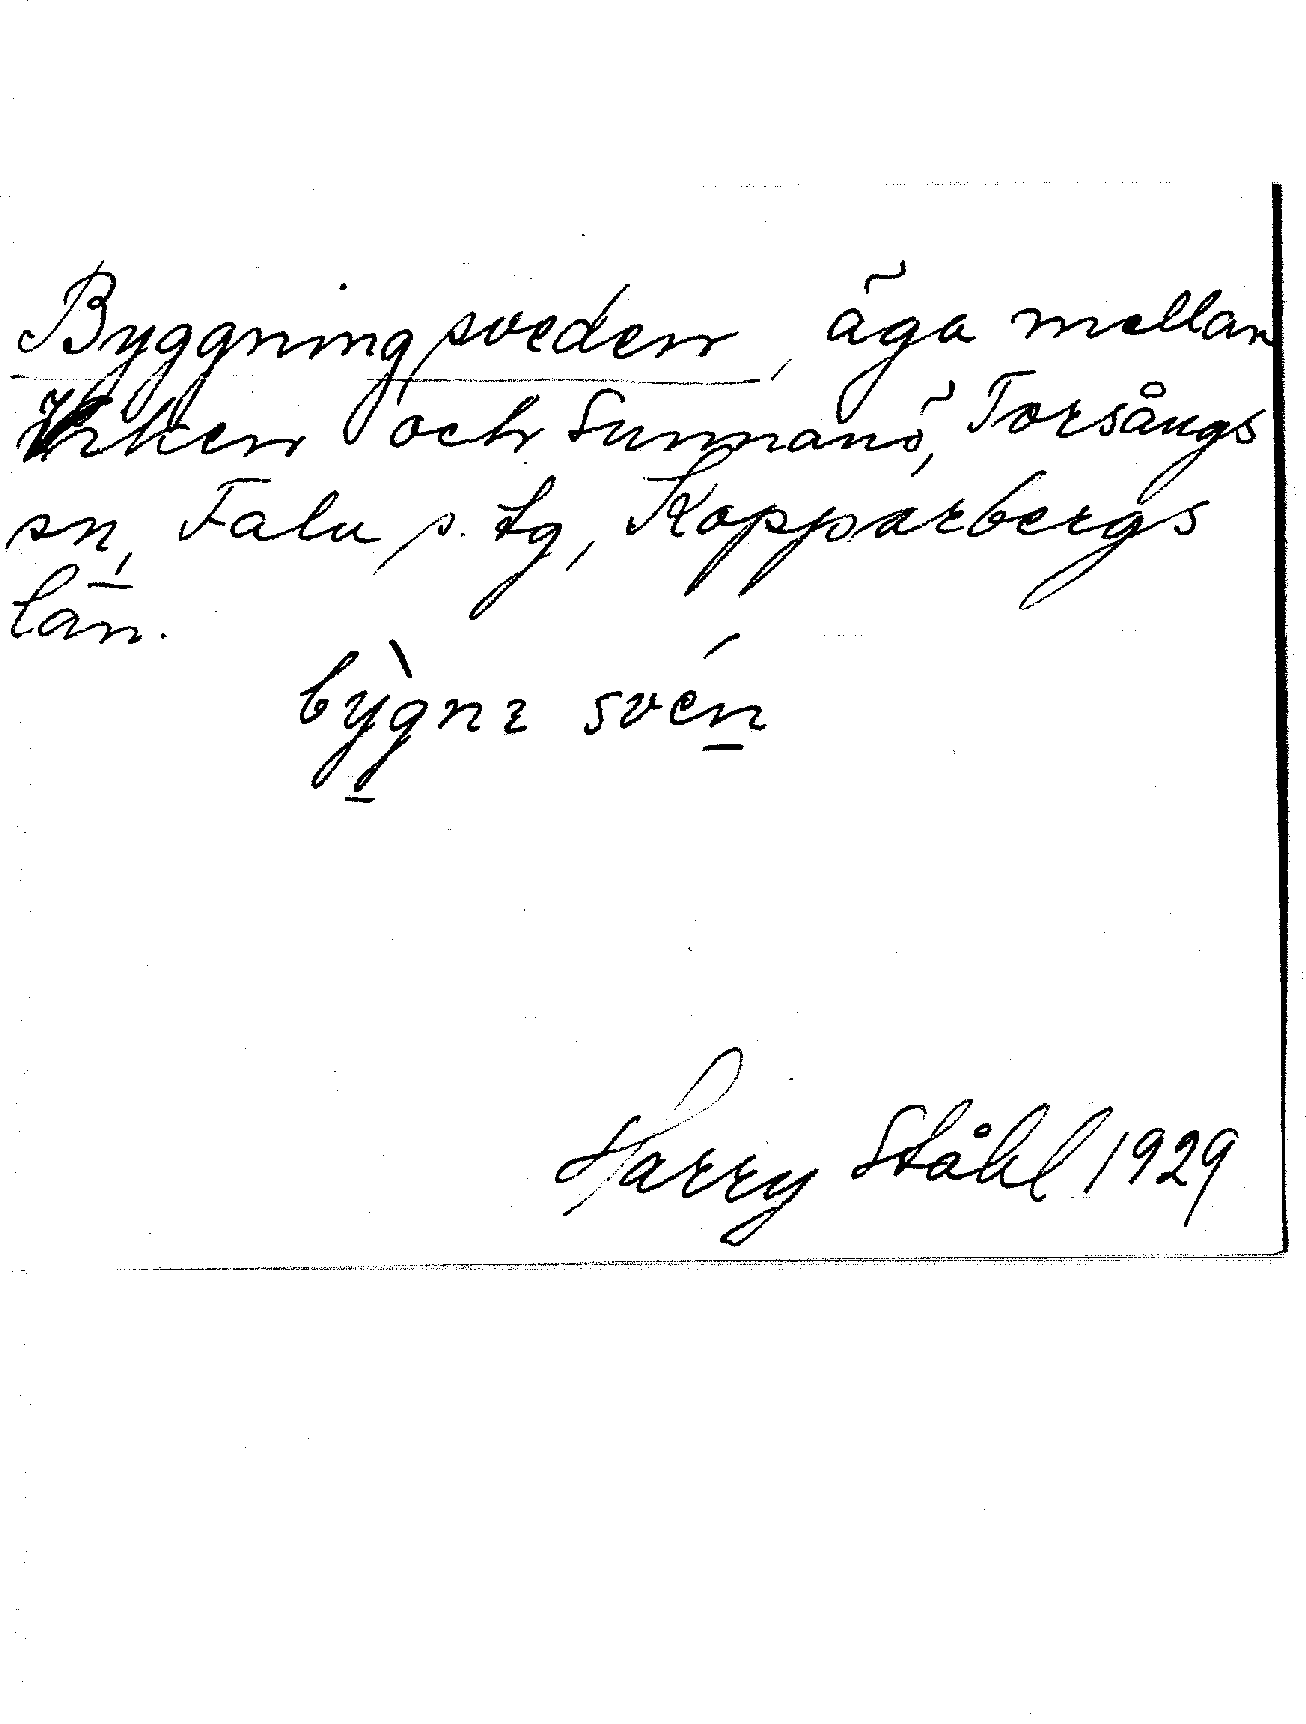 Byggningsveden, äga mellan
och Sunnanö, Torsångs
sn, Falu s. tg, Kopparbergs
län.
bỳgnɿ svén
Harry Ståhl 1929